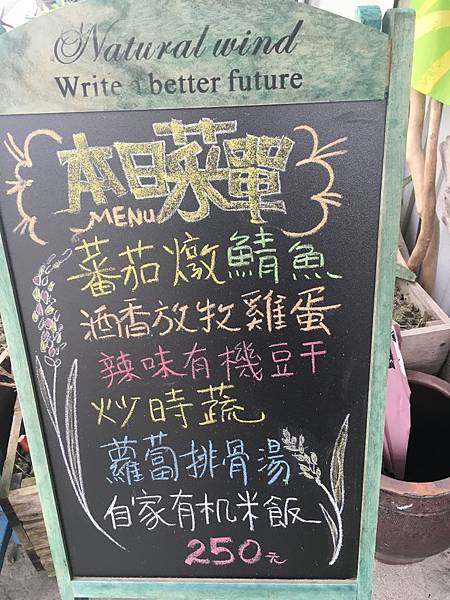 Natural wind
Write a better future
本日菜單
MENU
蕃茄燉鯖魚
酒香放牧雞蛋
辣味有機豆干
炒時蔬
蘿蔔排骨湯
自家有机米飯
250元